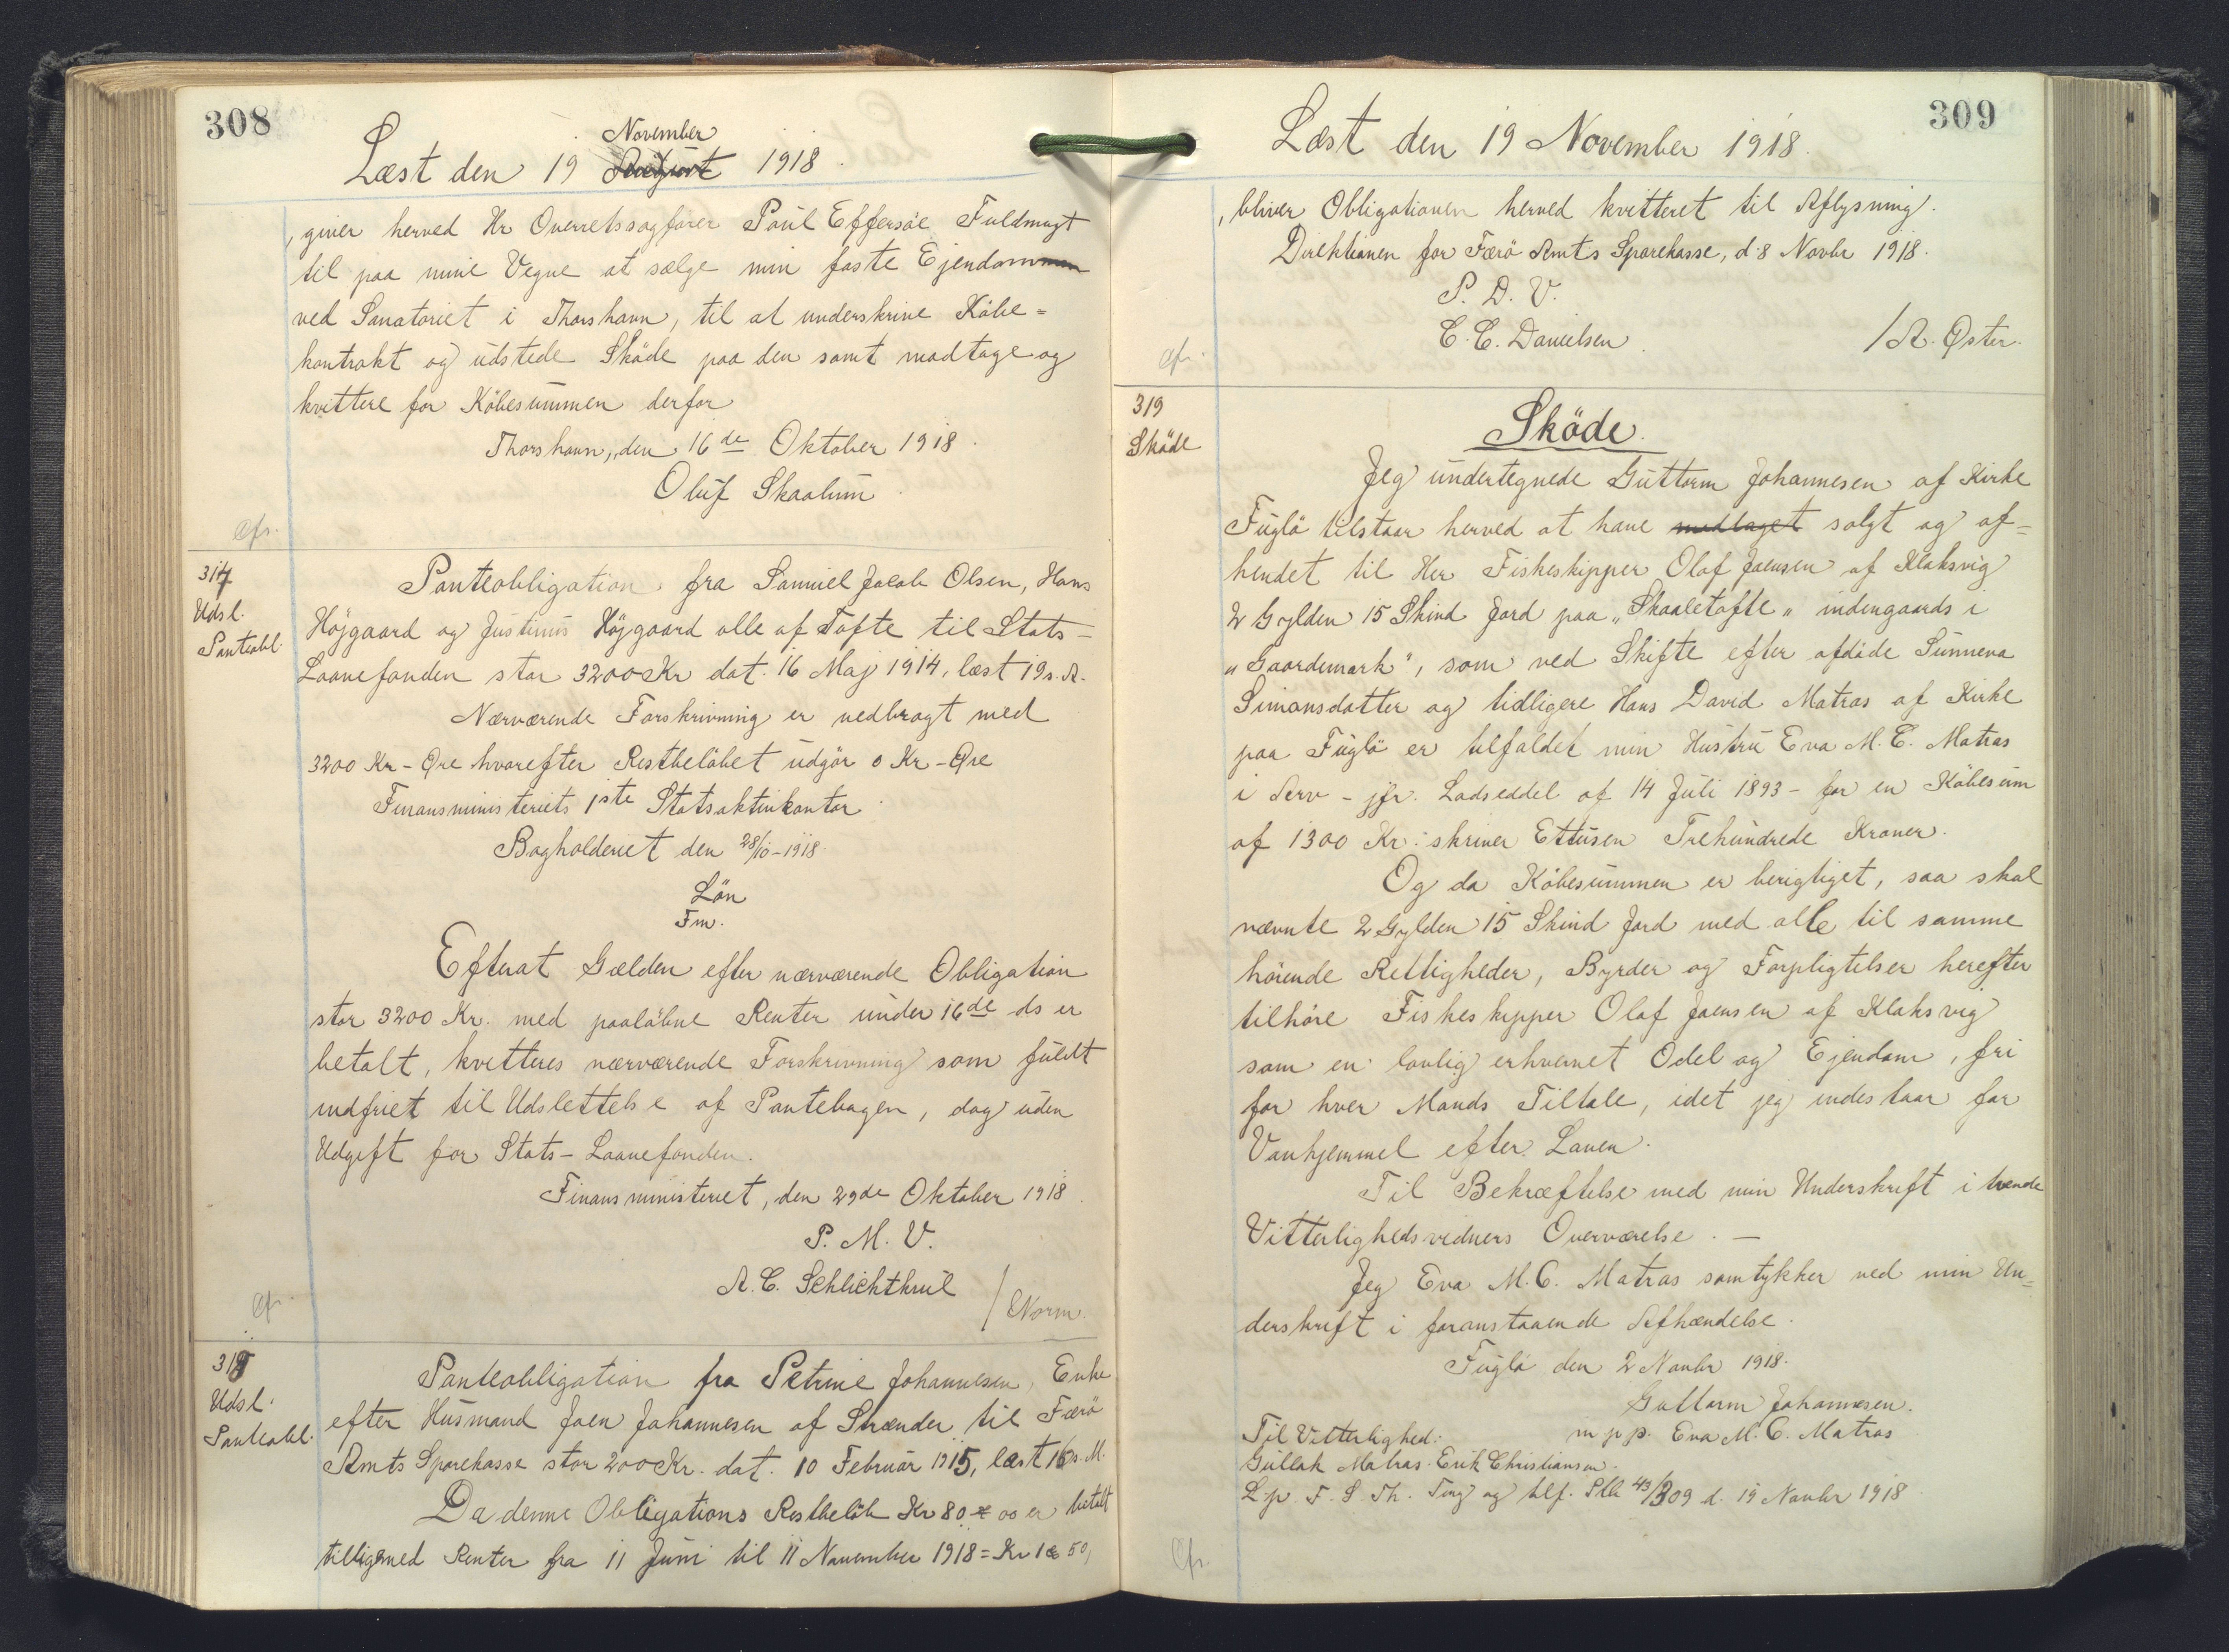 308
Læst den 19 November 1918.
, giver herved Hr Overretssagfører Poul Effersöe Fuldmagt
til paa mine Vegne at sælge min faste Ejendom
ved Sanatoriet i Thorshavn, til at underskrive Köbe=
kontrakt og udstede Sköde paa den samt modtage og
kvittere for Köbesummen derfor
Thorshavn, den 16de Oktober 1918.
Oluf Skaalum
Cfr.
317
Udsl.
Panteobl.
Panteobligation fra Samuel Jacob Olsen, Hans
Höjgaard og Justinus Höjgaard alle af Tofte til Stats-
Laanefonden stor 3200 Kr dat. 16 Maj 1914, læst 19 s. A.
Nærværende Forskrivning er nedbragt med
3200 Kr - Øre hvorefter Restbelöbet udgör 0 Kr - Øre
Finansministeriets 1ste Statsaktivkontor
Bogholderiet den 28/10-1918.
Lön
Fm.
Efterat Gælden efter nærværende Obligation
stor 3200 Kr. med paalöbne Renter under 16de ds er
betalt, kvitteres nærværende Forskrivning som fuldt
indfriet til Udslettelse af Pantebogen, dog uden
Udgift for Stats-Laanefonden.
Finansministeriet, den 29de Oktober 1918.
P. M. V.
A. C. Schlichtkrul
/ Worm.
Cfr.
318
Udsl.
Panteobl.
Panteobligation fra Petrine Johannesen, Enke
efter Husmand Joen Johannesen af Strænder til Færö
Amts Sparekasse stor 200 Kr. dat. 10 Februar 1915, læst 16 s. M.
Da denne Obligations Restbelöb Kr 80 00 er betalt
tilligemed Renter fra 11 Juni til 11 November 1918 = Kr 1 50,
309
Læst den 19 November 1918.
, bliver Obligationen herved kvitteret til Aflysning.
Direktionen for Færö Amts Sparekasse, d. 8 Novbr 1918.
P. D. V.
C. C. Danielsen
/ A. Øster.
Cfr.
319
Sköde
Sköde.
Jeg undertegnede Guttorm Johannesen af Kirke
Fuglö tilstaar herved at have modtaget solgt og af=
hendet til Her Fiskeskipper Olaf Joensen af Klaksvig
2 Gylden 15 Skind Jord paa "Skaaletofte" indengaards i
"Gaardemark", som ved Skifte efter afdöde Sunneva
Simonsdatter og tidligere Hans David Matras af Kirke
paa Fuglö er tilfaldet min Hustru Eva M. C. Matras
i Arv - jfr. Lodseddel af 14 Juli 1893 - for en Köbesum
af 1300 Kr: skriver Ettusen Trehundrede Kroner.
Og da Köbesummen er berigtiget, saa skal
nævnte 2 Gylden 15 Skind Jord med alle til samme
hörende Rettigheder, Byrder og Forpligtelser herefter
tilhöre Fiskeskipper Olaf Joensen af Klaksvig
som en lovlig erhvervet Odel og Ejendom, fri
for hver Mands Tiltale, idet jeg indestaar for
Vanhjemmel efter Loven.
Til Bekræftelse med min Underskrift i tvende
Vitterlighedsvidners Overværelse. -
Jeg Eva M. C. Matras samtykker ved min Un=
derskrift i foranstaaende Afhændelse.
Fuglö den 2 Novbr 1918.
Guttorm Johannesen.
Til Vitterlighed: m. p. p. Eva M. C. Matras
Gullak Matras. Erik Christiansen.
L. p. F. S. Th. Ting og tilf. Ptb 43/309 d. 19 Novbr 1918
Cfr.